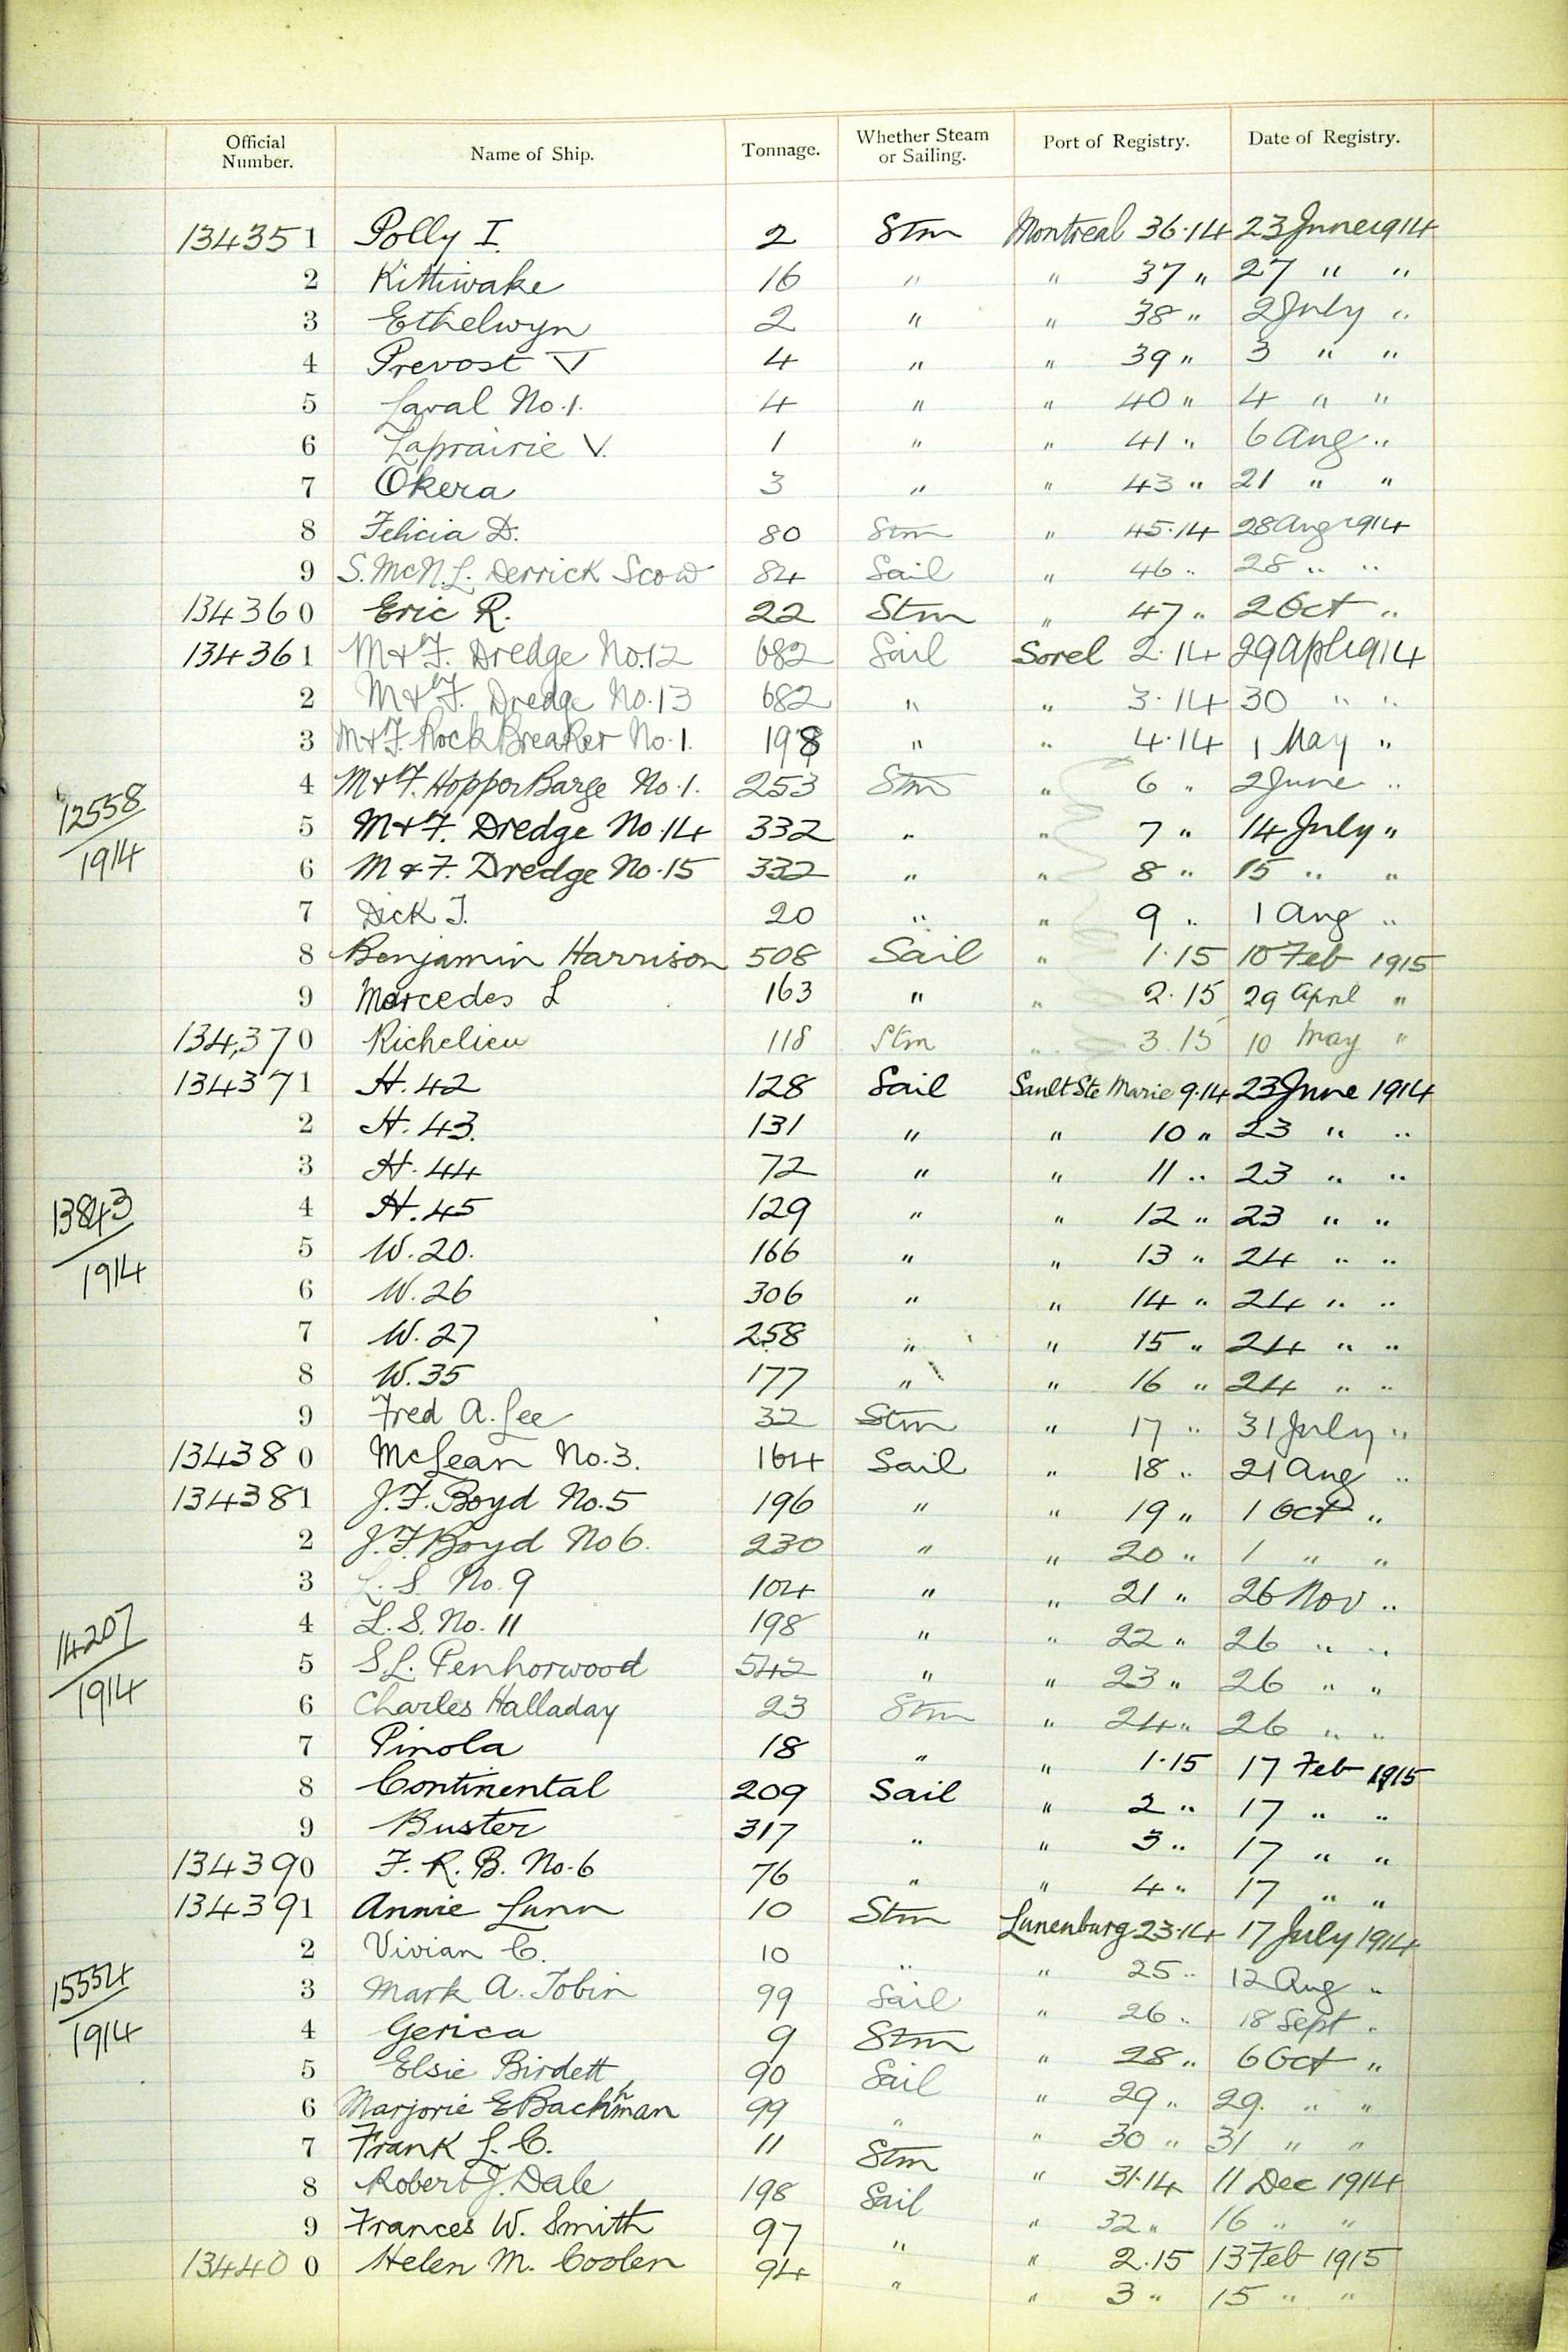 Official Number. Name of Ship. Tonnage. Whether Steam or Sailing. Port of Registry. Date of Registry.
134351 Polly I. 2 Stm Montreal 36·14 23 June 1914
2 Kittiwake 16 " " 37 " 27 " "
3 Ethelwyn 2 " " 38 " 2 July "
4 Prevost V 4 " " 39 " 3 " "
5 Laval No. 1. 4 " " 40 " 4 " "
6 Laprairie V. 1 " " 41 " 6 Aug "
7 Okera 3 " " 43 " 21 " "
8 Felicia D. 80 Stm " 45·14 28 Aug 1914
9 S. McN. L. Derrick Scow 84 Sail " 46 " 28 " "
134360 Eric R. 22 Stm " 47 " 2 Oct "
134361 M & F. Dredge No. 12 682 Sail Sorel 2·14 29 Apl 1914
2 M & F. Dredge No. 13 682 " " 3·14 30 " "
3 M & F. Rock Breaker No. 1. 198 " " 4·14 1 May "
4 M & F. Hopper Barge No. 1. 253 Stm " 6 " 2 June "
12558/1914
5 M & F. Dredge No. 14 332 " " 7 " 14 July "
6 M & F. Dredge No. 15 332 " " 8 " 15 " "
7 Dick T. 20 " " 9 " 1 Aug "
8 Benjamin Harrison 508 Sail " 1·15 10 Feb 1915
9 Mercedes L 163 " " 2·15 29 April "
134,370 Richelieu 118 Stm " 3.15 10 May "
134371 H. 42 128 Sail Sault Ste Marie 9·14 23 June 1914
2 H. 43. 131 " " 10 " 23 " "
3 H. 44 72 " " 11 " 23 " "
4 H. 45 129 " " 12 " 23 " "
13843/1914
5 W. 20. 166 " " 13 " 24 " "
6 W. 26 306 " " 14 " 24 " "
7 W. 27 258 " " 15 " 24 " "
8 W. 35 177 " " 16 " 24 " "
9 Fred A. Lee 32 Stm " 17 " 31 July "
134380 McLean No. 3. 164 Sail " 18 " 21 Aug "
134381 J. F. Boyd No. 5 196 " " 19 " 1 Oct "
2 J. F. Boyd No 6. 230 " " 20 " 1 " "
3 L. S. No. 9 104 " " 21 " 26 Nov "
4 L. S. No. 11 198 " " 22 " 26 " "
14207/1914
5 S L. Penhorwood 542 " " 23 " 26 " "
6 Charles Halladay 23 Stm " 24 " 26 " "
7 Pinola 18 " " 1·15 17 Feb 1915
8 Continental 209 Sail " 2 " 17 " "
9 Buster 317 " " 3 " 17 " "
134390 F. R. B. No. 6 76 " " 4 " 17 " "
134391 Annie Lunn 10 Stm Lunenburg 23·14 17 July 1914
2 Vivian C. 10 " " 25 " 12 Aug "
3 Mark A. Tobin 99 Sail " 26 " 18 Sept "
15554/1914
4 Gerica 9 Stm " 28 " 6 Oct "
5 Elsie Birdett 90 Sail " 29 " 29. " "
6 Marjorie E Bachman 99 " " 30 " 31 " "
7 Frank L. C. 11 Stm " 31·14 11 Dec 1914
8 Robert J. Dale 198 Sail " 32 " 16 " "
9 Frances W. Smith 97 " " 2.15 13 Feb 1915
134400 Helen M. Coolen 94 " " 3 " 15 " "